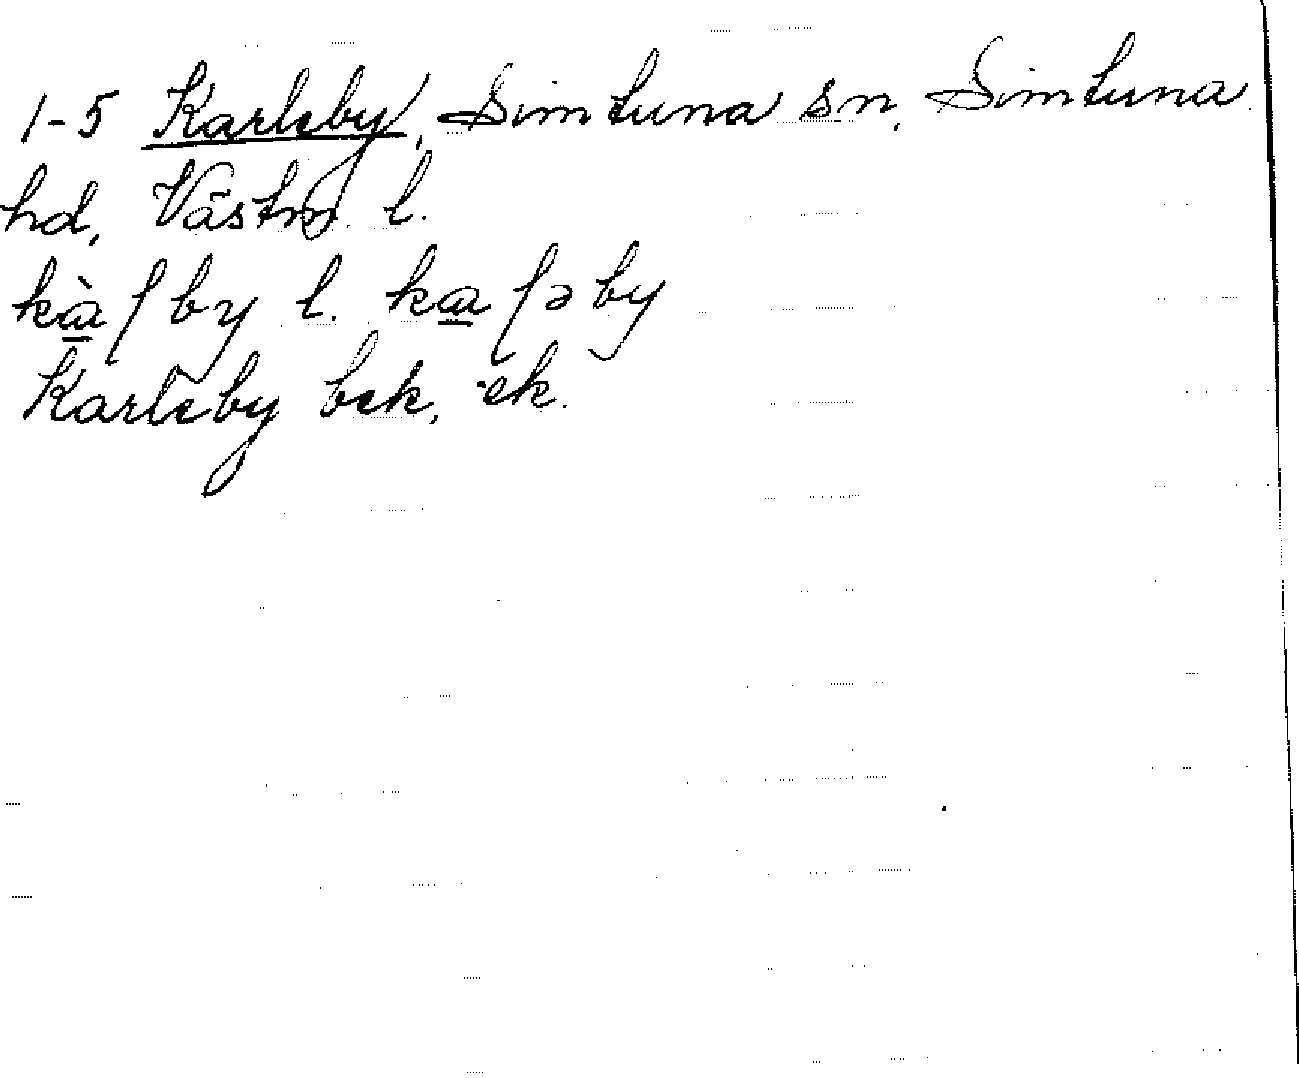 1-5 Karleby, Simtuna sn, Simtuna
hd, Västm. l.
kàꞎby l. kaꞎəby
Karleby bek, ek.